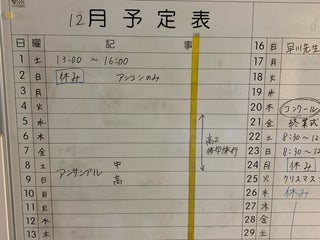 12月予定表
日 曜 記 事
1 土 13:00 ～ 16:00
2 日 休み アンコンのみ
3 月
4 火
5 水
6 木
7 金
8 土 アンサンブル 中
9 日 高
10 月
11 火
12 水
13 木
高2
修学旅行
16 日 早川先生
17 月
18 火
19 水
20 木 コンクール
21 金 終業式
22 土 8:30～12
23 日 8:30～12
24 月 休み
25 火 クリスマス
26 水 休み
27 木
28 金
29 土